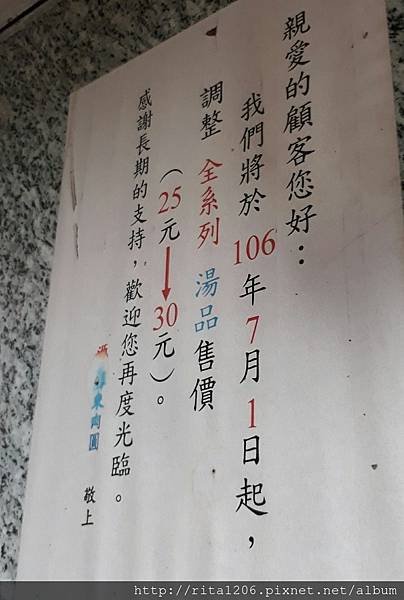 親愛的顧客您好：
我們將於 106 年 7 月 1 日起，
調整 全系列 湯品售價
（25元→30元）。
感謝長期的支持，歡迎您再度光臨。
東肉圓 敬上
http://rita1206.pixnet.net/album